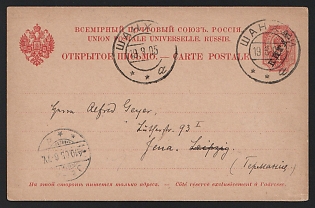 ВСЕМІРНЫЙ ПОЧТОВЫЙ СОЮЗЪ. РОССІЯ.
UNION POSTALE UNIVERSELLE. RUSSIE.
ОТКРЫТОЕ ПИСЬМО. — CARTE POSTALE.
ШАНХАЙ
19.8.05
а
ШАН
19.8
а
Herrn Alfred Geyer,
Lutherstr. 93 I
Jena. Leipzig
(Германія)
На этой сторонѣ пишется только адресъ. — Côté réservé exclusivement à l'adresse.